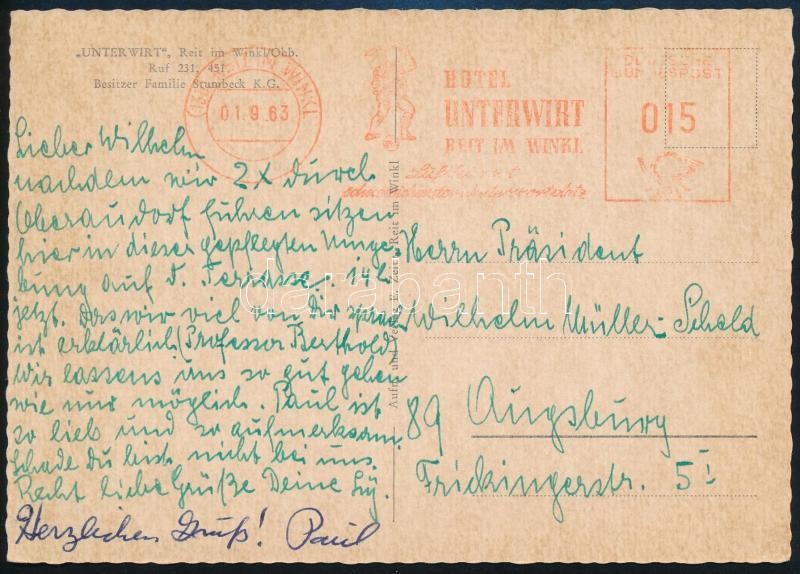 „UNTERWIRT", Reit im Winkl/Obb.
Ruf 231, 451
Besitzer Familie Stumbeck K.G.
REIT IM WINKL
01.9.63
HOTEL
UNTERWIRT
REIT IM WINKL
DEUTSCHE
BUNDESPOST
015
Lieber Wilhelm
nachdem wir 2X durch
Oberaudorf fuhren sitzen
hier in dieser gepflegten Umge-
bung auf d. Terrasse. 14 h
jetzt. Das wir viel von Dir
ist erklärlich (Professor Berthold)
Wir lassens uns so gut gehen
wie nur möglich. Paul ist
so lieb und so aufmerksam.
Schade du bist nicht bei uns.
Recht liebe Grüße Deine
Herzlichen Gruß! Paul
Reit im Winkl
Herrn Präsident
Wilhelm Müller-Scheld
89 Augsburg
Frickingerstr. 5 I
darabanth